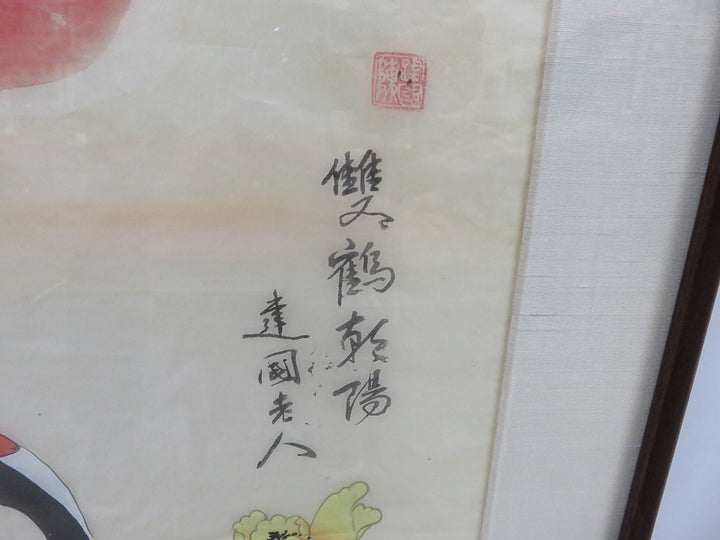 雙鶴朝陽
建國老人